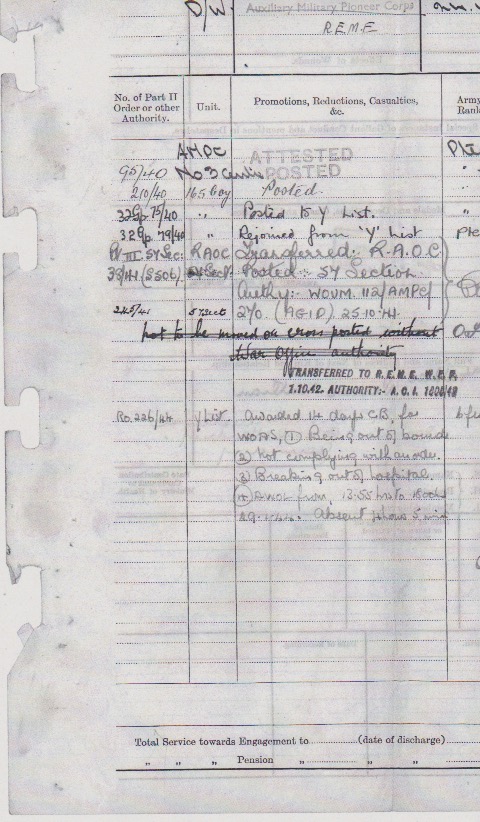 D/W. Auxiliary Military Pioneer Corps
R.E.M.E
No. of Part II Order or other Authority. Unit. Promotions, Reductions, Casualties, &c. Army Rank
AMPC ATTESTED
95/40 No 3 POSTED
210/40 165 Coy Posted.
32Gp 75/40 " Posted to Y List.
32Gp 79/40 " Rejoined from 'Y' List
Pt III SY Sec: RAOC Transferred:- R.A.O.C
Posted:- SY Section
Authy:- WOUM. 112/AMPC/
245/41 SY Sect 270. (AG1D) 25.10.41.
not to be moved or cross posted without
War Office authority
TRANSFERRED TO R.E.M.E. W.E.F.
1.10.42. AUTHORITY:- A.C.I. 1806/42
Ro. 226/44 Y List Awarded 14 days C.B. for
WOAS, ① Being out of bounds
② Not complying with an order.
③ Breaking out of hospital.
④ AWOL from 13.55 hrs to
Absent 4 hours 5 min
Total Service towards Engagement to (date of discharge)
" " " Pension " " "